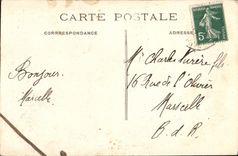 CARTE POSTALE
CORRESPONDANCE
ADRESSE
5c
Mr Charles fils
16 Rue de l'Olivier
Marseille
B. d. R.
Bonjour.
Marcelle